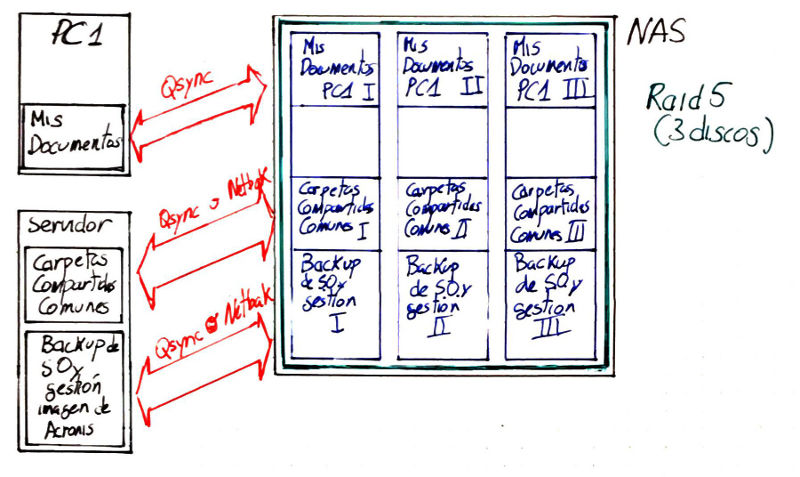 PC1
Mis
Documentos
Qsync
NAS
Raid 5
(3 discos)
Mis
Documentos
PC1 I
Mis
Documentos
PC1 II
Mis
Documentos
PC1 III
Carpetas
Compartidas
Comunes
I
Carpetas
Compartidas
Comunes II
Carpetas
Compartidas
Comunes III
Backup
de S.O y
gestion
I
Backup
de S.O. y
gestión
II
Backup
de S.O y
gestion
III
Qsync o Netbak
Servidor
Carpetas
Compartidas
Comunes
Qsync o Netbak
Backup de
SO y
gestión
imagen de
Acronis